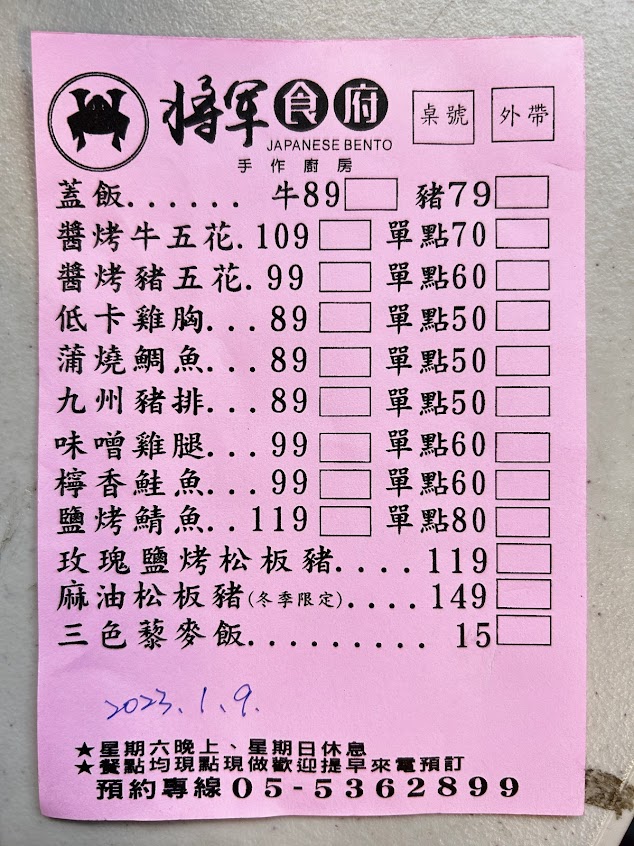 將軍食府
JAPANESE BENTO
手作廚房
桌號 外帶
蓋飯...... 牛89 豬79
醬烤牛五花.109 單點70
醬烤豬五花.99 單點60
低卡雞胸...89 單點50
蒲燒鯛魚...89 單點50
九州豬排...89 單點50
味噌雞腿...99 單點60
檸香鮭魚...99 單點60
鹽烤鯖魚..119 單點80
玫瑰鹽烤松板豬....119
麻油松板豬(冬季限定)....149
三色藜麥飯......... 15
2023.1.9.
★星期六晚上、星期日休息
★餐點均現點現做歡迎提早來電預訂
預約專線05-5362899